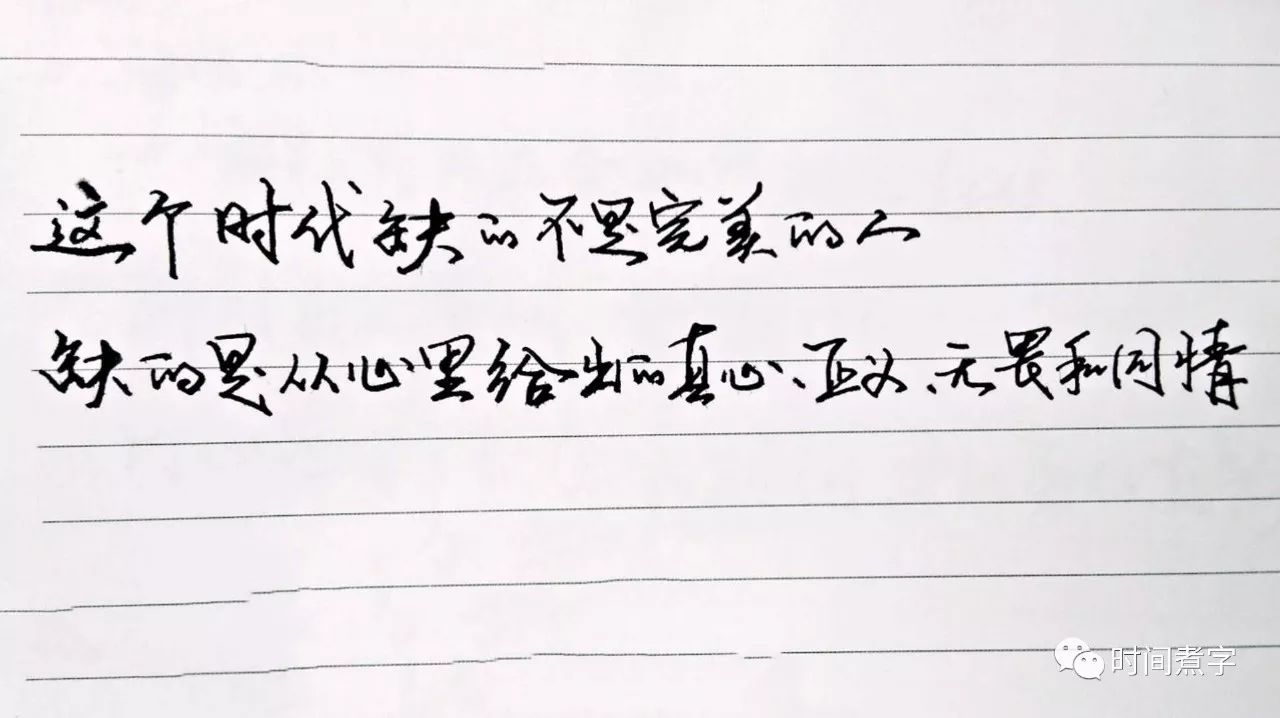 这个时代缺的不是完美的人
缺的是从心里给出的真心、正义、无畏和同情
时间煮字